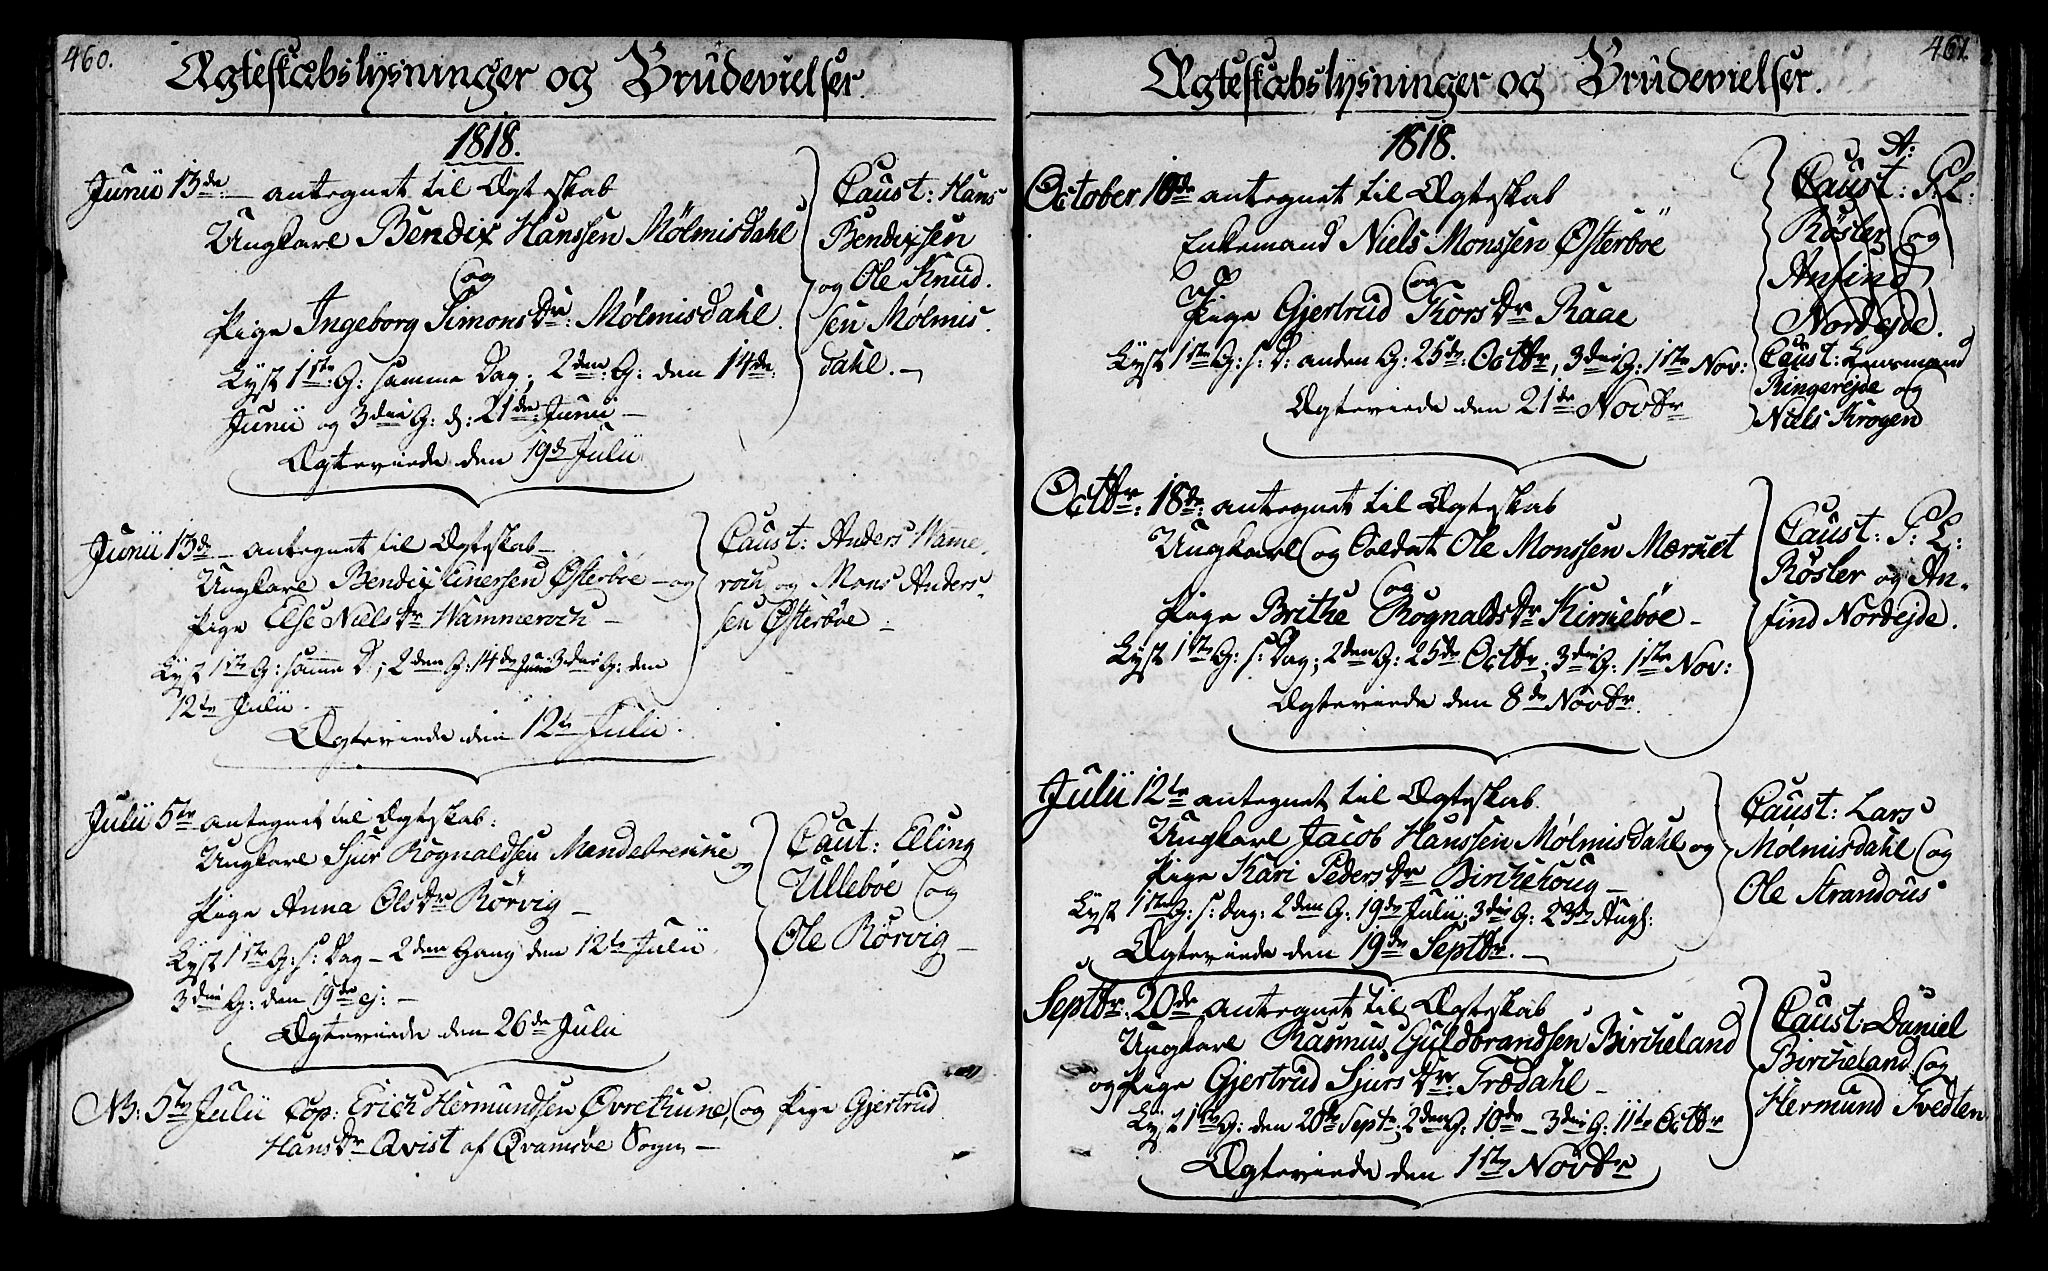 460.
Ægteskabslysninger og Brudevielser.
1818.
Junii 13de antegnet til Ægteskab
Ungkarl Bendix Hanssen Mølmisdahl
og
Pige Ingeborg Simonsdr: Mølmisdahl.
Lyst 1ste G: samme Dag; 2den G: den 14de
Junii og 3die G: d: 21de Junii –
Ægteviede den 19de Julii
Caust: Hans
Bendixsen
og Ole Knud-
sen Mølmis-
dahl. –
Junii 13de – antegnet til Ægteskab –
Ungkarl Bendix Einersen Østerboe – og
Pige Else Nielsdr Wammeroch –
Lyst 1ste G: samme D; 2den G: 14de Junii 3die G: den
12te Julii.
Ægteviede den 12te Julii.
Caust: Anders Wame-
roch og Mons Anders-
sen Østerböe –
Julii 5te antegnet til Ægteskab:
Ungkarl Sjur Rognaldsen Mendebrecke
og
Pige Anna Olsdr Rørvig –
Lyst 1ste G: s: Dag – 2den Gang den 12te Julii
3die G: den 19de ej: –
Ægteviede den 26de Julii
Caut: Elling
Ullebøe og
Ole Rørvig –
NB: 5te Julii Cop: Erich Hermundsen Øvrethune, og Pige Gjertrud
Hansdr Qvist af Qvamsøe Sogn –
461.
Ægteskabslysninger og Brudevielser.
1818.
October 18de antegnet til Ægteskab
Enkemand Niels Monssen Østerböe
og
Pige Gjertrud Thorsdr Raae
Lyst 1ste G: s: D: anden G: 25de Octbr, 3die G: 1ste Nov:
Ægteviede den 21de Novbr
A:
Caust: P. L:
Røsler og
Anfind
Nordejde.
Caust: Lensmand
Ringerejde og
Niels Krogen
Octbr: 18de: antegnet til Ægteskab
Ungkarl og Soldat Ole Monssen Mærket
og
Pige Brithe Rognaldsdr Kirkebøe –
Lyst 1ste G: s: Dag; 2den G: 25de Octbr; 3die G: 1ste Nov:
Ægteviede den 8de Novbr.
Caust: P: L:
Røsler og An-
find Nordejde.
Julii 12te antegnet til Ægteskab.
Ungkarl Jacob Hanssen Mølmisdahl og
Pige Kari Pedersdr Birchehoug –
Lyst 1ste G: s: Dag: 2den G: 19de Julii; 3die G: 23de Aug:
Ægteviede den 19de Septbr. –
Caust: Lars
Mølmisdahl og
Ole Strandous
Septbr: 20de antegnet til Ægteskab
Ungkarl Rasmus Guldbrandsen Bircheland
og Pige Gjertrud Sjursdr: Trædahl –
Lyst 1ste G: den 20de Sept; 2den G: 10de – 3die G: 11te Octbr
Ægteviede den 1ste Novbr
Caust: Daniel
Bircheland og
Hermund Tvedten